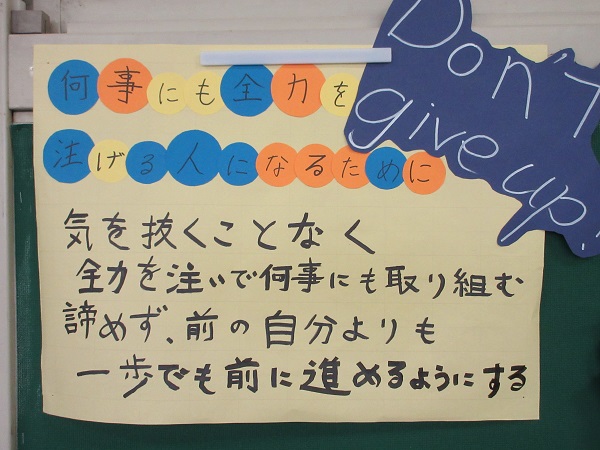 何事にも全力を
注げる人になるために
Don't
give up!
気を抜くことなく
全力を注いで何事にも取り組む
諦めず、前の自分よりも
一歩でも前に進めるようにする